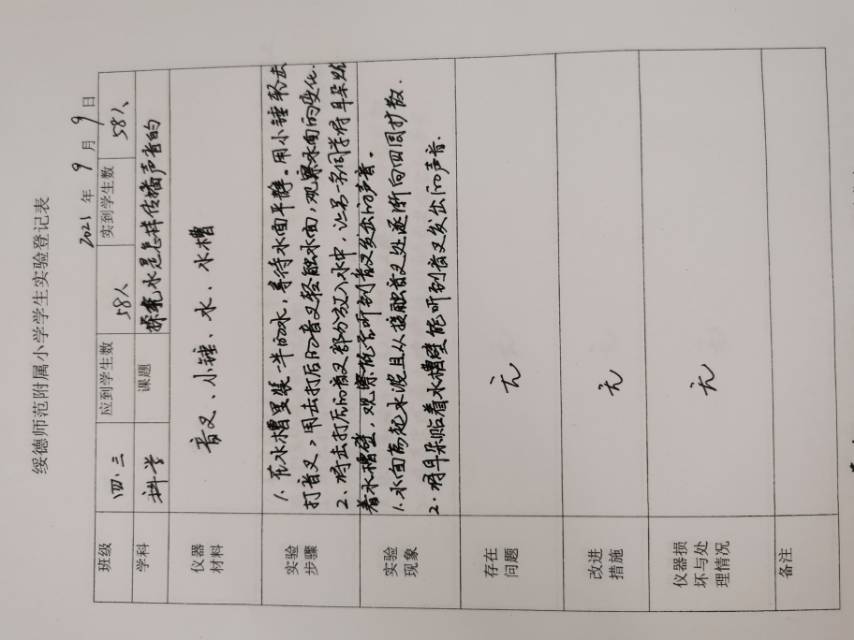 绥德师范附属小学学生实验登记表
2021 年 9 月 9 日
班级 四.三 应到学生数 58人 实到学生数 58人
学科 科学 课题 探究水是怎样传播声音的
仪器材料 音叉、小锤、水、水槽
实验步骤
1. 在水槽里装一半的水，等待水面平静。用小锤轻击
打音叉，用击打后的音叉轻触水面，观察水面的变化.
2. 将击打后的音叉部分放入水中，让另一名同学将耳朵贴
着水槽壁，观察能否听到音叉发出的声音。
实验现象
1. 水面荡起水波且从接触音叉处逐渐向四周扩散.
2. 将耳朵贴着水槽壁能听到音叉发出的声音.
存在问题 无
改进措施 无
仪器损坏与处理情况 无
备注